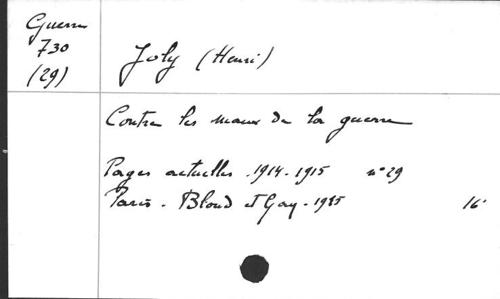 Guerre
730
(29)
Joly (Henri)
Contre les maux de la guerre
Pages actuelles . 1914 - 1915 n° 29
Paris - Bloud et Gay - 1915
16°